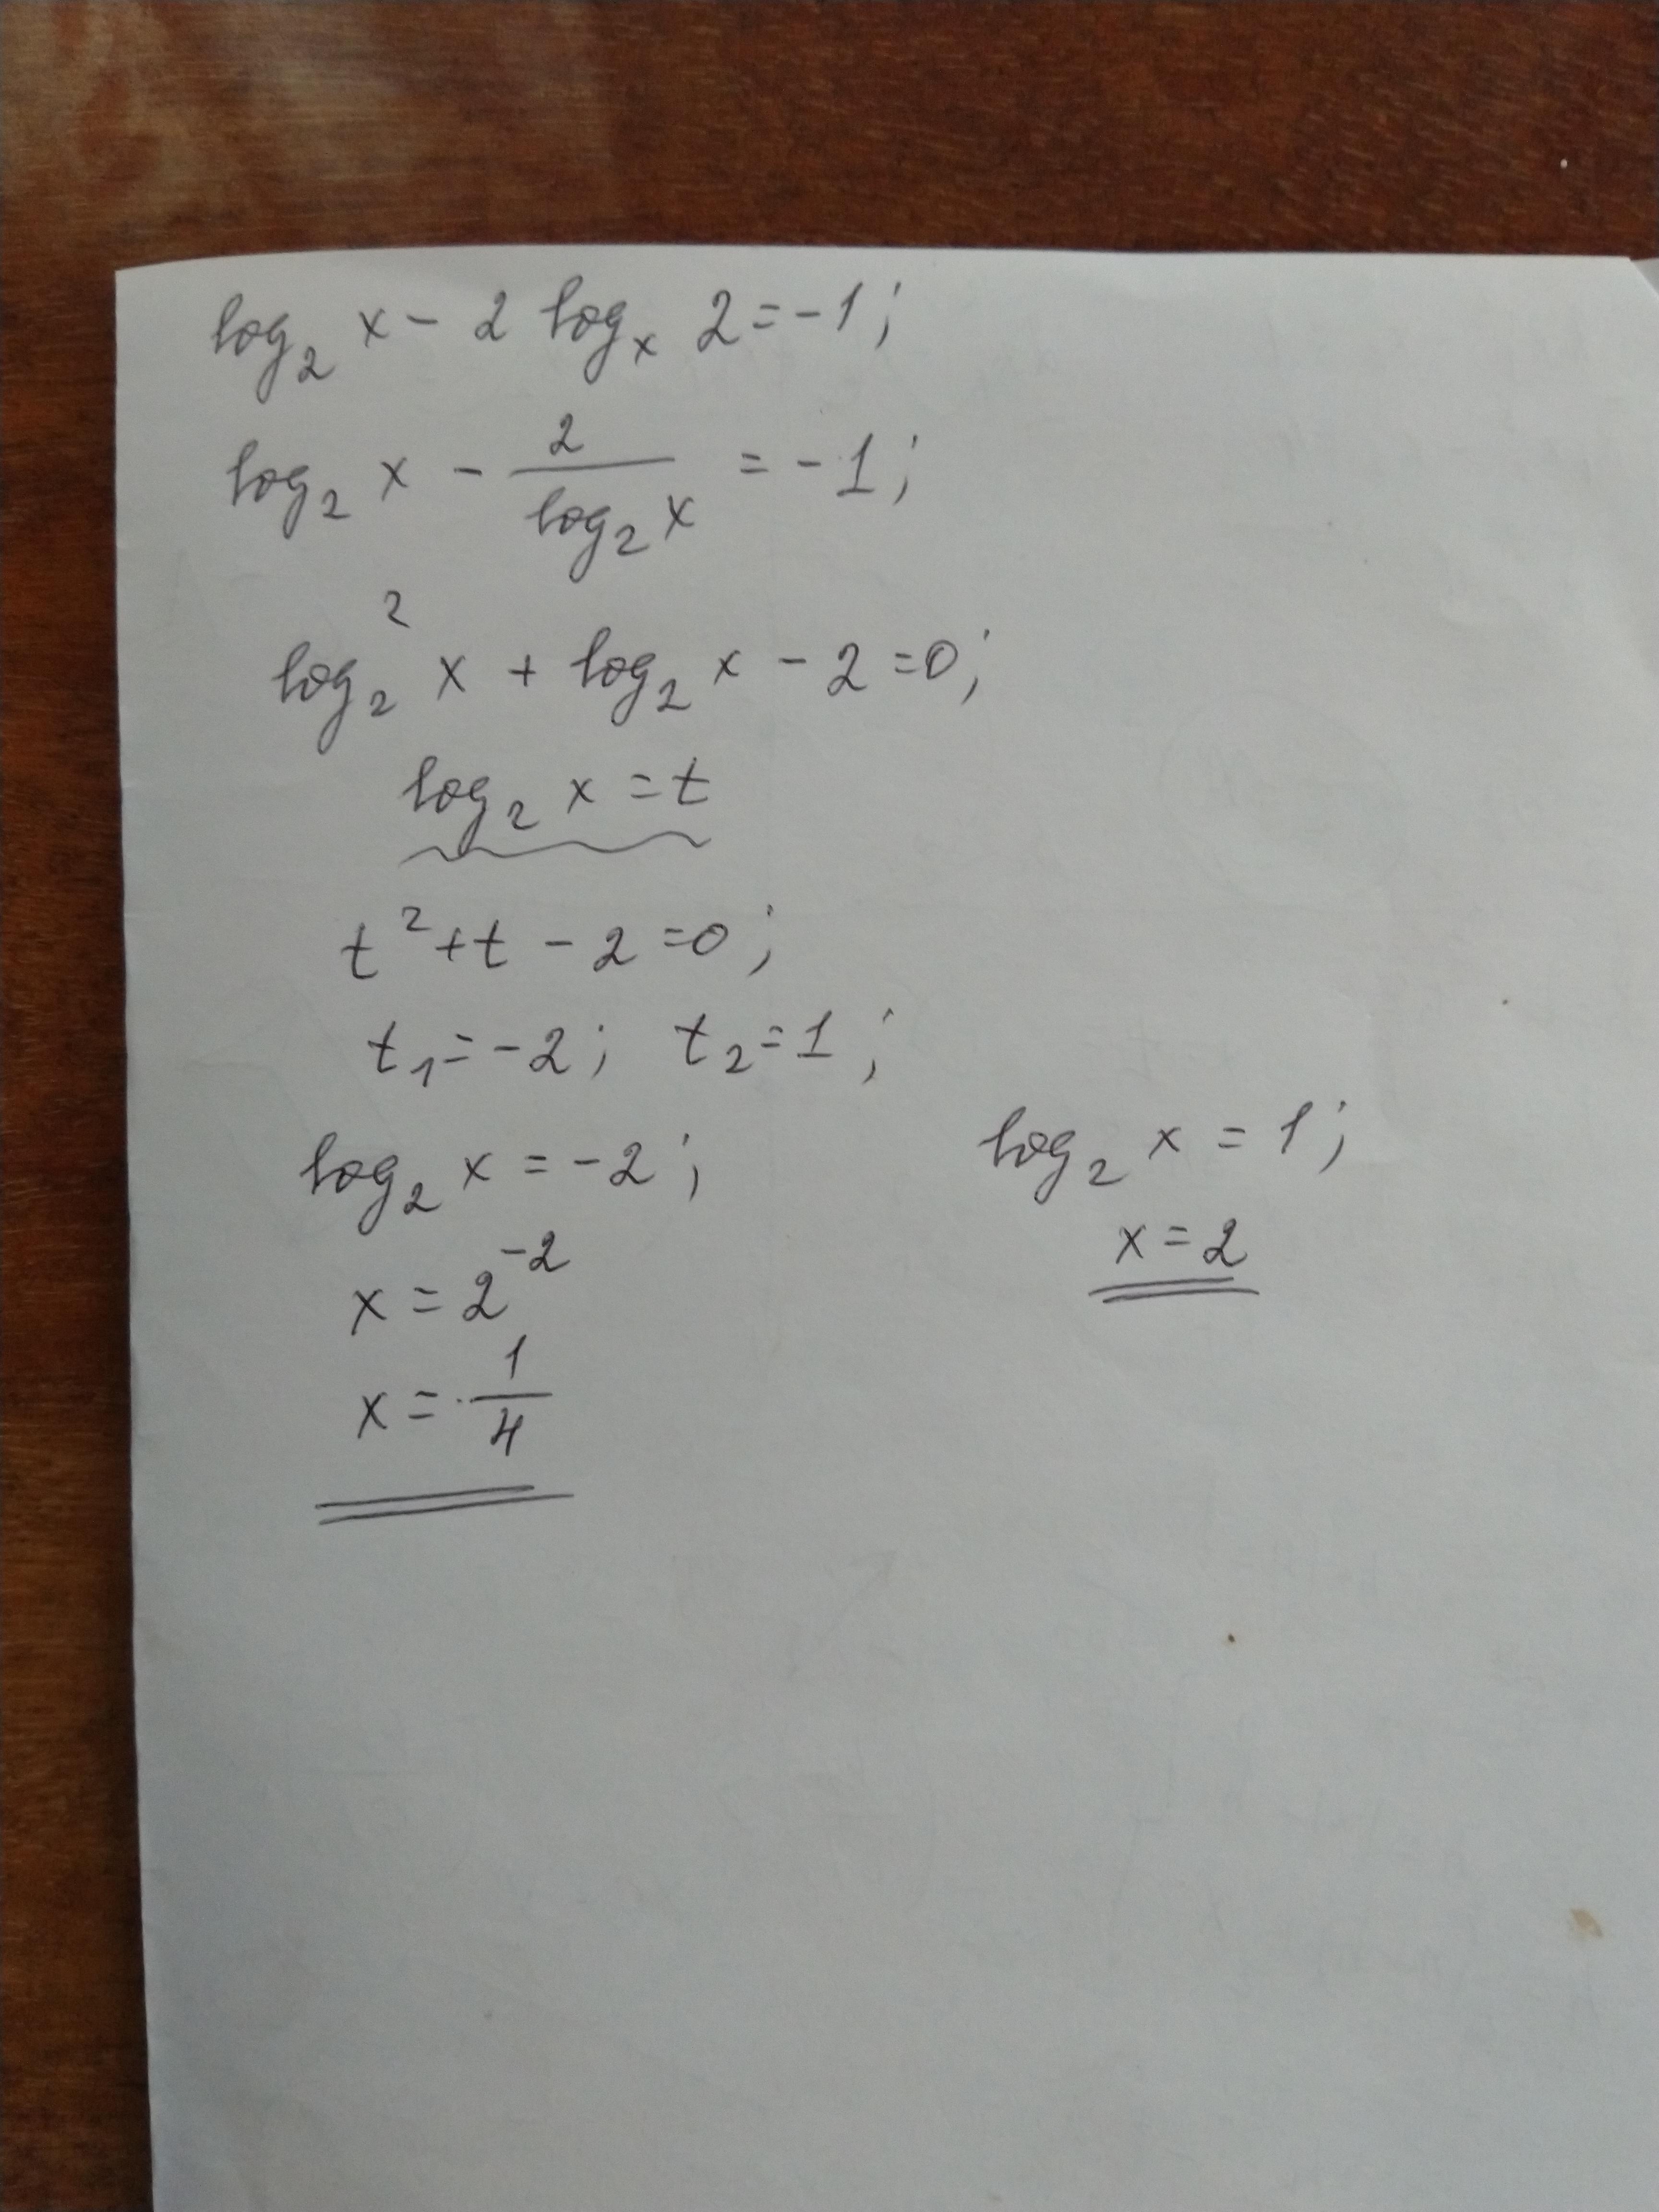 log₂ x - 2 logₓ 2 = -1;
log₂ x - 2/log₂ x = -1;
log₂² x + log₂ x - 2 = 0;
log₂ x = t
t² + t - 2 = 0;
t₁ = -2; t₂ = 1;
log₂ x = -2; log₂ x = 1;
x = 2⁻² x = 2
x = 1/4